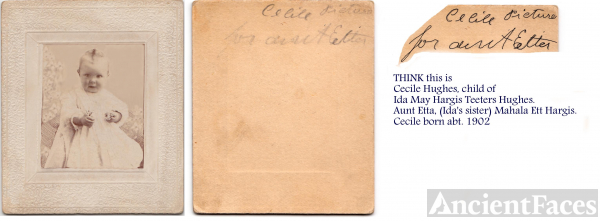 Cecile Picture
for aunt Etter
Cecile Picture
for aunt Etter
THINK this is
Cecile Hughes, child of
Ida May Hargis Teeters Hughes.
Aunt Etta, (Ida's sister) Mahala Ett Hargis.
Cecile born abt. 1902
AncientFaces